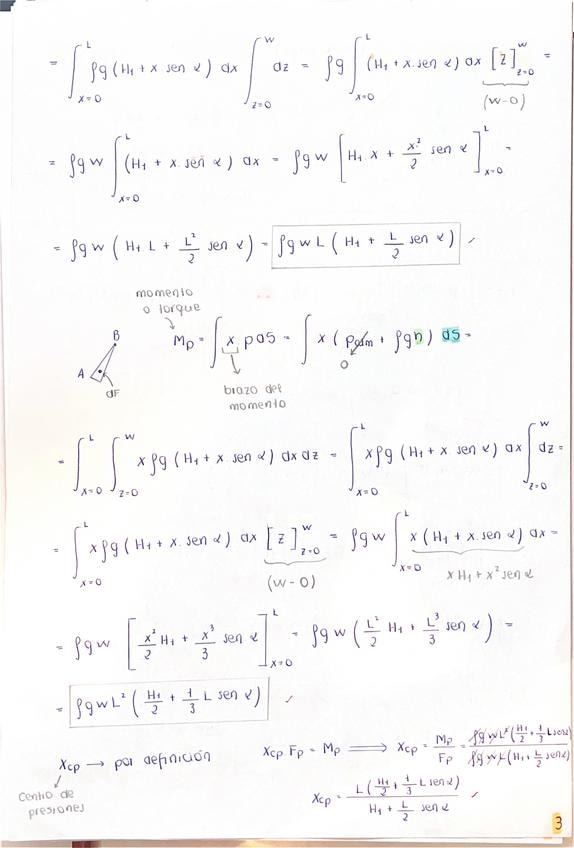 = ∫_{x=0}^{L} ρg (H₁ + x sen α) dx ∫_{z=0}^{W} dz = ρg ∫_{x=0}^{L} (H₁ + x. sen α) dx [z]_{z=0}^{W} =
(W-0)
= ρg W ∫_{x=0}^{L} (H₁ + x. sen α) dx = ρg W [H₁ x + x²/2 sen α]_{x=0}^{L} =
= ρg W (H₁ L + L²/2 sen α) = ρg W L (H₁ + L/2 sen α) ✓
momento
o torque
B
A
dF
M_p = ∫ x p dS = ∫ x (p_atm + ρgh) dS =
0
brazo del
momento
= ∫_{x=0}^{L} ∫_{z=0}^{W} x ρg (H₁ + x. sen α) dx dz = ∫_{x=0}^{L} x ρg (H₁ + x. sen α) dx ∫_{z=0}^{W} dz =
= ∫_{x=0}^{L} x ρg (H₁ + x. sen α) dx [z]_{z=0}^{W} = ρg W ∫_{x=0}^{L} x (H₁ + x. sen α) dx =
(W-0)
x H₁ + x² sen α
= ρg W [x²/2 H₁ + x³/3 sen α]_{x=0}^{L} = ρg W (L²/2 H₁ + L³/3 sen α) =
= ρg W L² (H₁/2 + 1/3 L sen α) ✓
X_cp → por definición X_cp F_p = M_p ⟹ X_cp = M_p/F_p = ρg W L² (H₁/2 + 1/3 L sen α) / ρg W L (H₁ + L/2 sen α)
centro de
presiones
X_cp = L (H₁/2 + 1/3 L sen α) / H₁ + L/2 sen α ✓
3